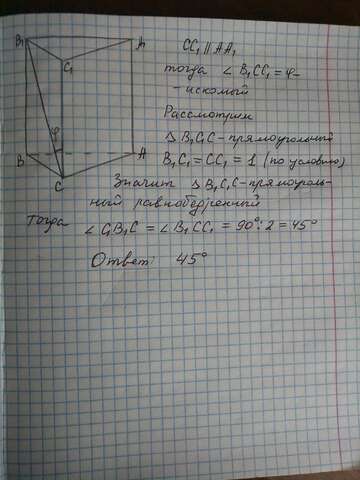 B₁
A₁
C₁
φ
B
A
C
CC₁ || AA₁
тогда ∠ B₁CC₁ = φ-
- искомый
Рассмотрим
△ B₁C₁C - прямоугольный
B₁C₁ = CC₁ = 1 (по условию)
Значит △ B₁C₁C - прямоуголь-
ный равнобедренный
Тогда
∠ C₁B₁C = ∠ B₁CC₁ = 90° : 2 = 45°
Ответ: 45°